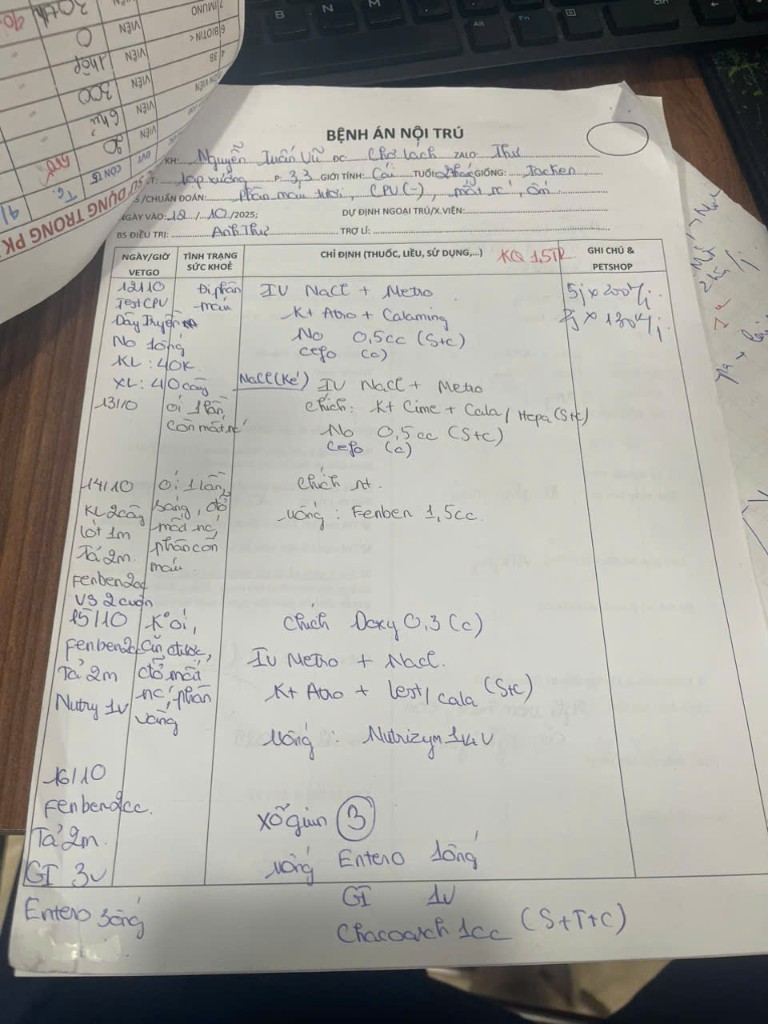 BỆNH ÁN NỘI TRÚ
KH: Nguyễn Tuấn Vũ ĐC: Chợ Lách ZALO: Thư
lạp xưởng P: 3,3 GIỚI TÍNH: Cái TUỔI: 2tháng GIỐNG: Jacken
/CHUẨN ĐOÁN: phân máu tươi, CPV(-), mất nc, ói
NGÀY VÀO: 12 / 10 /2025; DỰ ĐỊNH NGOẠI TRÚ/X.VIỆN:
BS ĐIỀU TRỊ: Anh Thư TRỢ LÍ:
NGÀY/GIỜ VETGO
TÌNH TRẠNG SỨC KHOẺ
CHỈ ĐỊNH (THUỐC, LIỀU, SỬ DỤNG,...) KQ 1,5TR
GHI CHÚ & PETSHOP
12/10
Test CPV
Dây Truyền
No 1 ống
KL : 40K
XL : 40 càng
Đi phân
máu
IV NaCl + Metro
K + Atro + Calaming
No 0,5cc (S+C)
cefo (c)
5j x 200k/j
2j x 130k/j
13/10
ói 1 lần
còn mất nc
NaCl (Ké) IV NaCl + Metro
chích: K + Cime + Cala / Hepa (S+C)
No 0,5cc (S+C)
cefo (c)
14/10
KL 2 càng
lót 1m
Tả 2m
Fenben 2cc
VS 2 cuộn
ói 1 lần
sáng, đỡ
mất nc,
phân còn
máu
chích nt.
uống : Fenben 1,5cc
15/10
Fenben 2cc
Tả 2m
Nutry 1v
K° ói,
ăn được,
đỡ mất
nc, phân
vàng
chích Doxy 0,3 (c)
IV Metro + NaCl.
K + Atro + Lest / Cala (S+C)
uống : Nutrizym 1/4 V
16/10
Fenben 2cc.
Tả 2m.
GI 3v
Entero 3ống
xổ giun 3
uống Entero 1ống
GI 1v
Chacoarch 1cc (S+T+C)
SỬ DỤNG TRONG PK
VIÊN
3B
BIOTIN
IMUNO